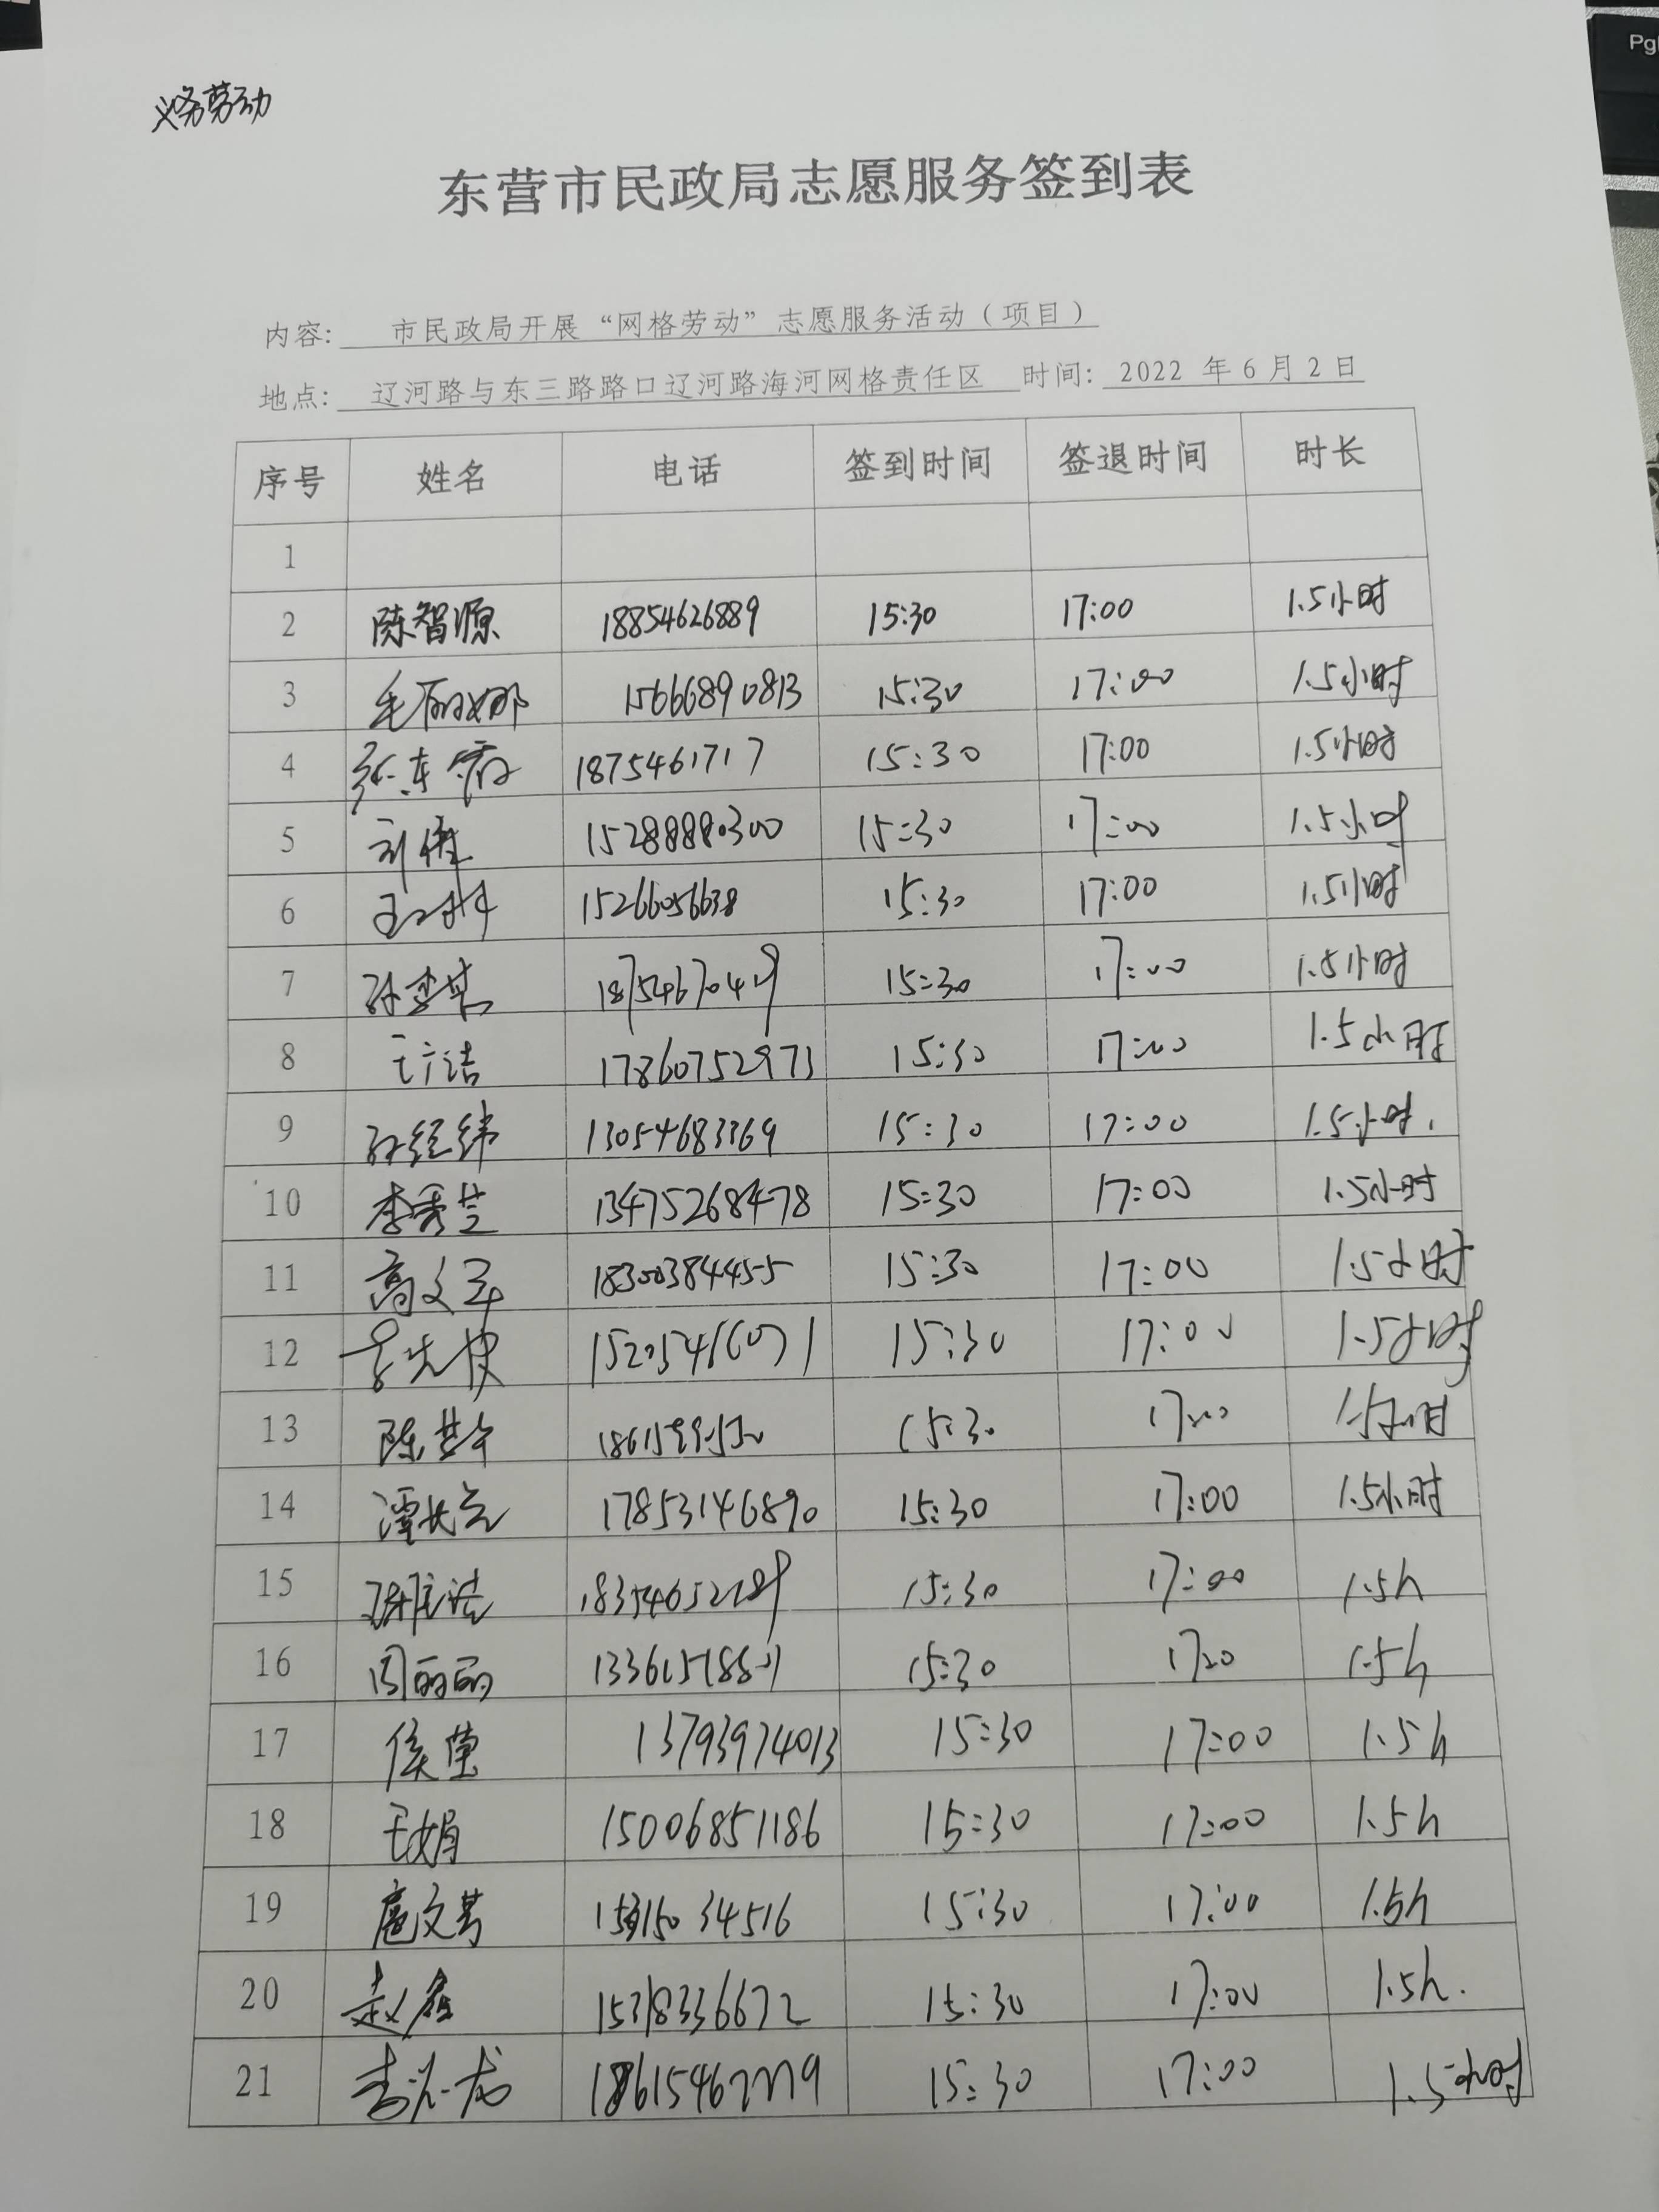 义务劳动
东营市民政局志愿服务签到表
内容: 市民政局开展“网格劳动”志愿服务活动（项目）
地点: 辽河路与东三路路口辽河路海河网格责任区 时间: 2022 年 6 月 2 日
序号 姓名 电话 签到时间 签退时间 时长
1
2 陈智源 18854626889 15:30 17:00 1.5小时
3 毛丽娜 15666890813 15:30 17:00 1.5小时
4 张东霞 1875461717 15:30 17:00 1.5小时
5 15288880300 15:30 17:00 1.5小时
6 15266056638 15:30 17:00 1.5小时
7 15:30 17:00 1.5小时
8 17860752973 15:30 17:00 1.5小时
9 孙经纬 13054683369 15:30 17:00 1.5小时.
10 李秀芝 13475268478 15:30 17:00 1.5小时
11 高文军 18300384455 15:30 17:00 1.5小时
12 15:30 17:00 1.5小时
13 15:30 17:00 1.5小时
14 17853146890 15:30 17:00 1.5小时
15 15:30 17:00 1.5h
16 周丽丽 15:30 1.5h
17 侯莹 13793974013 15:30 17:00 1.5h
18 王娟 15006851186 15:30 17:00 1.5h
19 扈文芳 34516 15:30 17:00 1.5h
20 15318336672 15:30 17:00 1.5h.
21 15:30 17:00 1.5小时
PgU